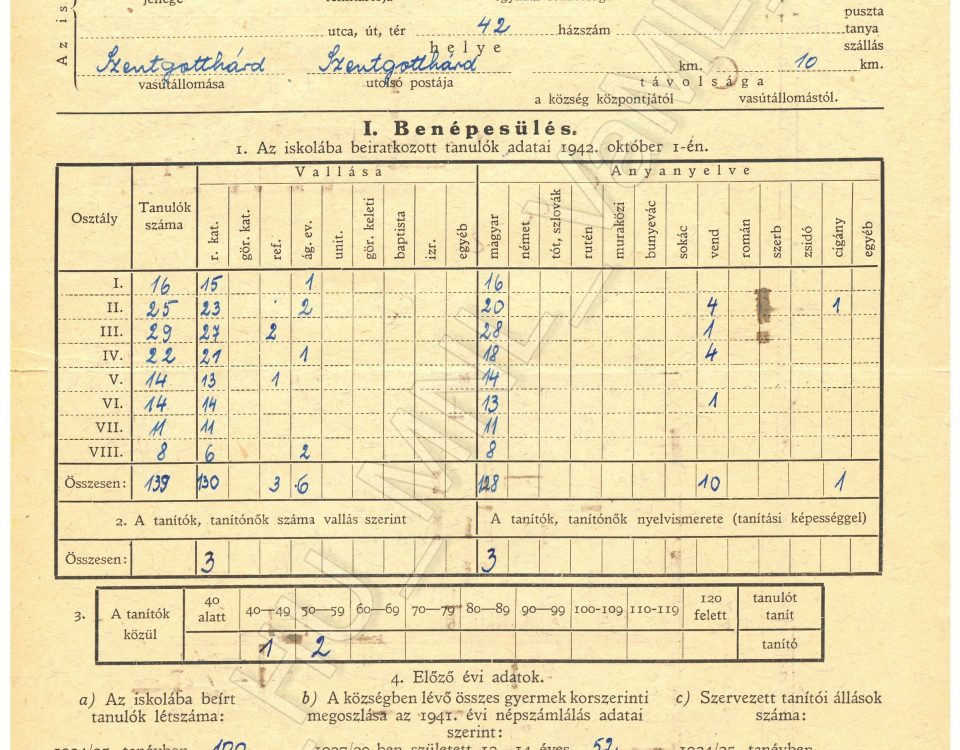 jellege
puszta
utca, út, tér 42 házszám tanya
helye szállás
Az is
Szentgotthárd Szentgotthárd km. 10 km.
vasútállomása utolsó postája távolsága
a község központjától vasútállomástól.
I. Benépesülés.
1. Az iskolába beiratkozott tanulók adatai 1942. október 1-én.
Osztály Tanulók száma Vallása Anyanyelve
r. kat. gör. kat. ref. ág. ev. unit. gör. keleti baptista izr. egyéb magyar német tót, szlovák rutén muraközi bunyevác sokác vend román szerb zsidó cigány egyéb
I. 16 15 1 16
II. 25 23 2 20 4 1
III. 29 27 2 28 1
IV. 22 21 1 18 4
V. 14 13 1 14
VI. 14 14 13 1
VII. 11 11 11
VIII. 8 6 2 8
Összesen: 139 130 3 6 128 10 1
2. A tanítók, tanítónők száma vallás szerint A tanítók, tanítónők nyelvismerete (tanítási képességgel)
Összesen: 3 3
3. A tanítók közül 40 alatt 40—49 50—59 60—69 70—79 80—89 90—99 100-109 110-119 120 felett tanulót tanít
1 2 tanító
4. Előző évi adatok.
a) Az iskolába beírt b) A községben lévő összes gyermek korszerinti c) Szervezett tanítói állások
tanulók létszáma: megoszlása az 1941. évi népszámlálás adatai száma:
szerint:
HU_MNL_VaML